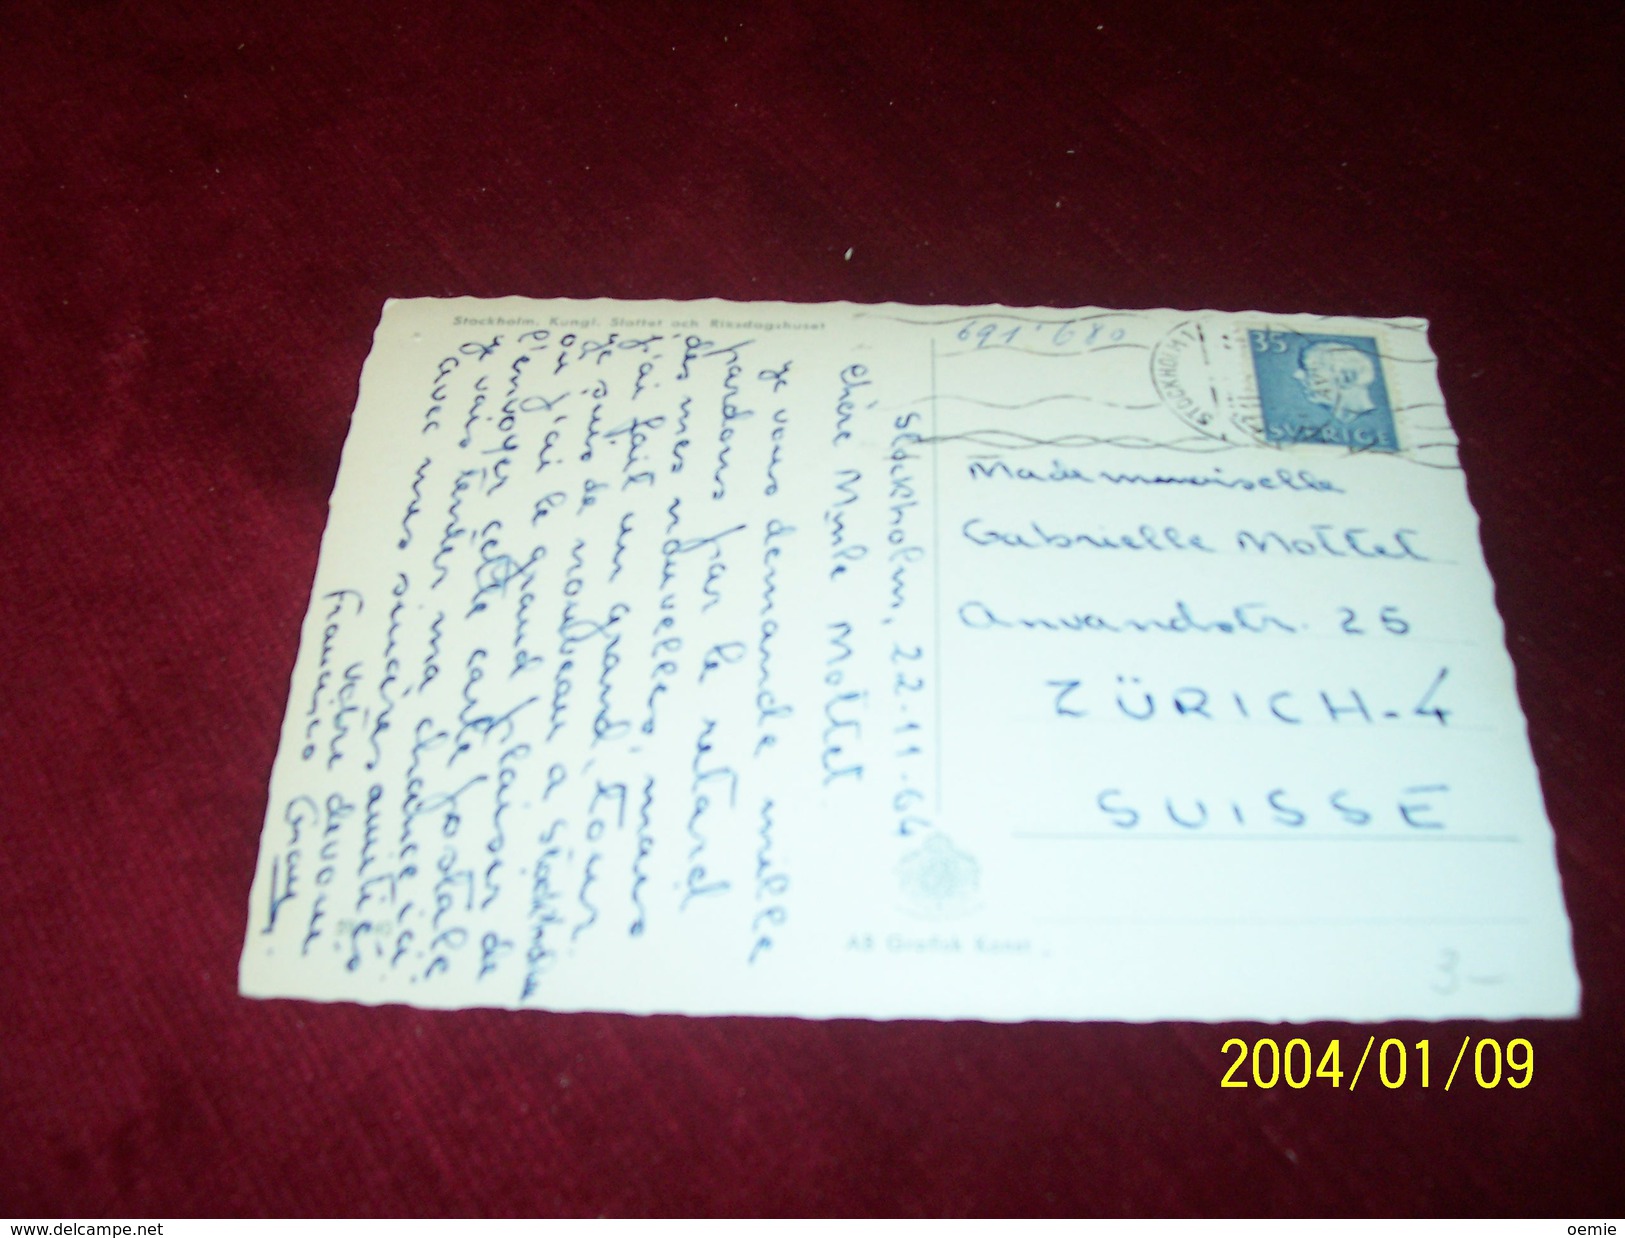 Stockholm. Kungl. Slottet och Riksdagshuset
Stockholm, 22-11-64
Chère Mmle Mottet
Je vous demande mille
pardons par le retard
des mes nouvelles, mais
j'ai fait un grand tour
je suis de nouveau a Stockholm
ou j'ai le grand plaisir de
l'envoyer cette carte postale
Je vais tenter ma chance ici
avec mes sincères amitiés
votre devoue
Francisco
691.680
STOCKHOLM
35
SVERIGE
Mademoiselle
Gabrielle Mottet
Anwandstr. 25
ZÜRICH-4
SUISSE
AB Grafisk Konst
3-
2004/01/09
www.delcampe.net
oemie